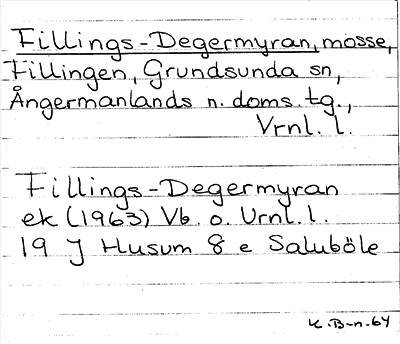 Fillings-Degermyran, mosse,
Fillingen, Grundsunda sn,
Ångermanlands n. doms. tg.,
Vrnl. l.
Fillings-Degermyran
ek (1963) Vb. o. Vrnl. l.
19 J Husum 8 e Saluböle
K.B-n-64